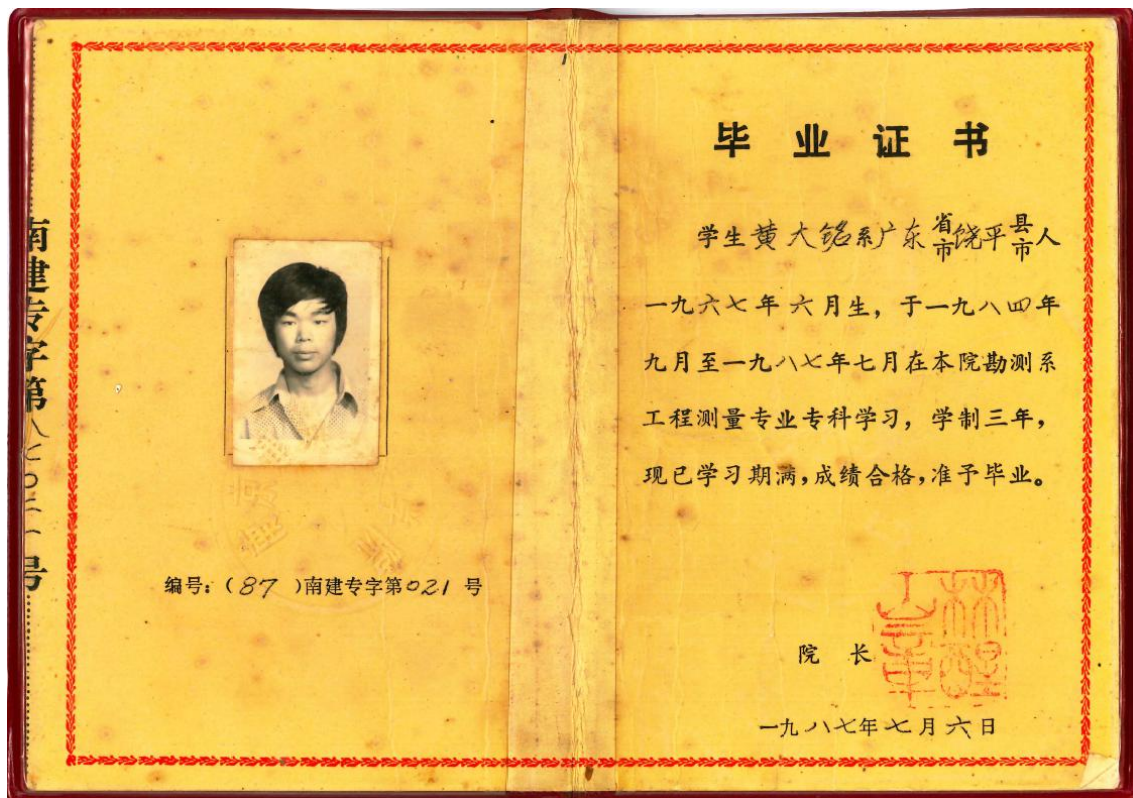 南建专字第八七〇二一号
编号:(87)南建专字第021号
毕业证书
学生黄大铭系广东省市饶平县市人
一九六七年六月生,于一九八四年
九月至一九八七年七月在本院勘测系
工程测量专业专科学习,学制三年,
现已学习期满,成绩合格,准予毕业。
院长
一九八七年七月六日